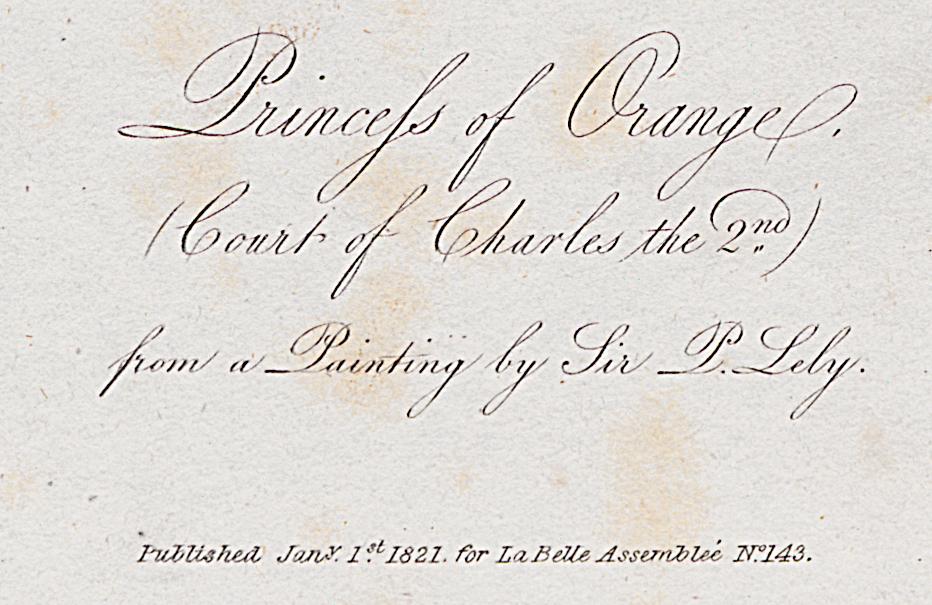 Princeſs of Orange.
(Court of Charles the 2nd)
from a Painting by Sir P. Lely.
Published Jany. 1st. 1821. for La Belle Assembleé No. 143.